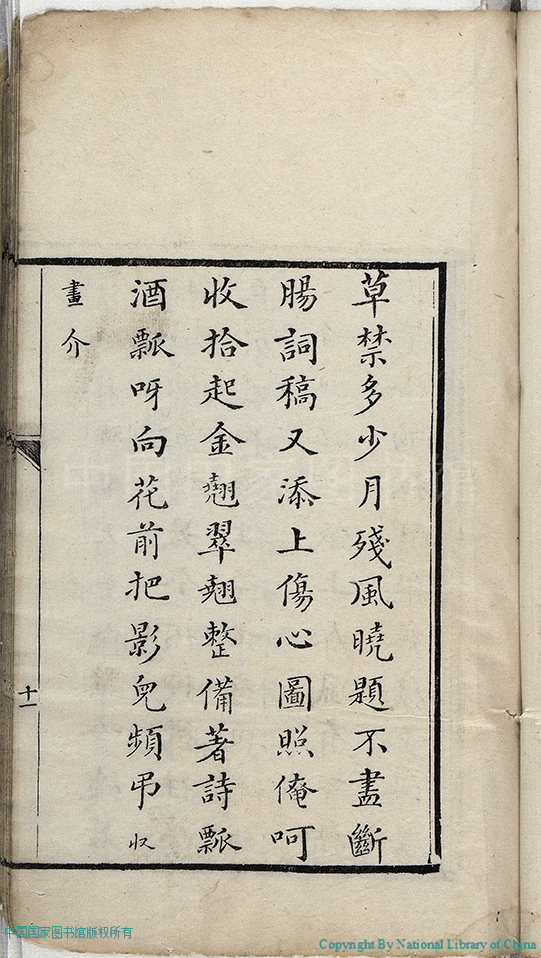 草禁多少月殘風曉題不盡斷
腸詞稿又添上傷心圖照俺呵
收拾起金翹翠翹整備著詩瓢
酒瓢呀向花前把影兒頻弔收
畫介
十一
中国国家图书馆版权所有
Copyright By National Library of China